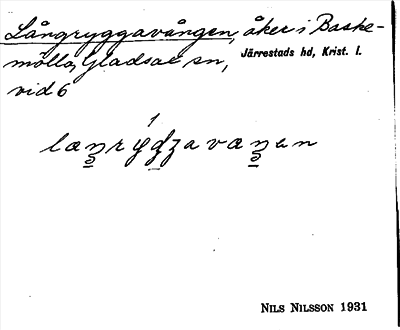 Långryggavången, åker i Baske-
mölla, Gladsax sn, Järrestads hd, Krist. l.
vid 6
læŋrýd̠ʒavæŋan
NILS NILSSON 1931